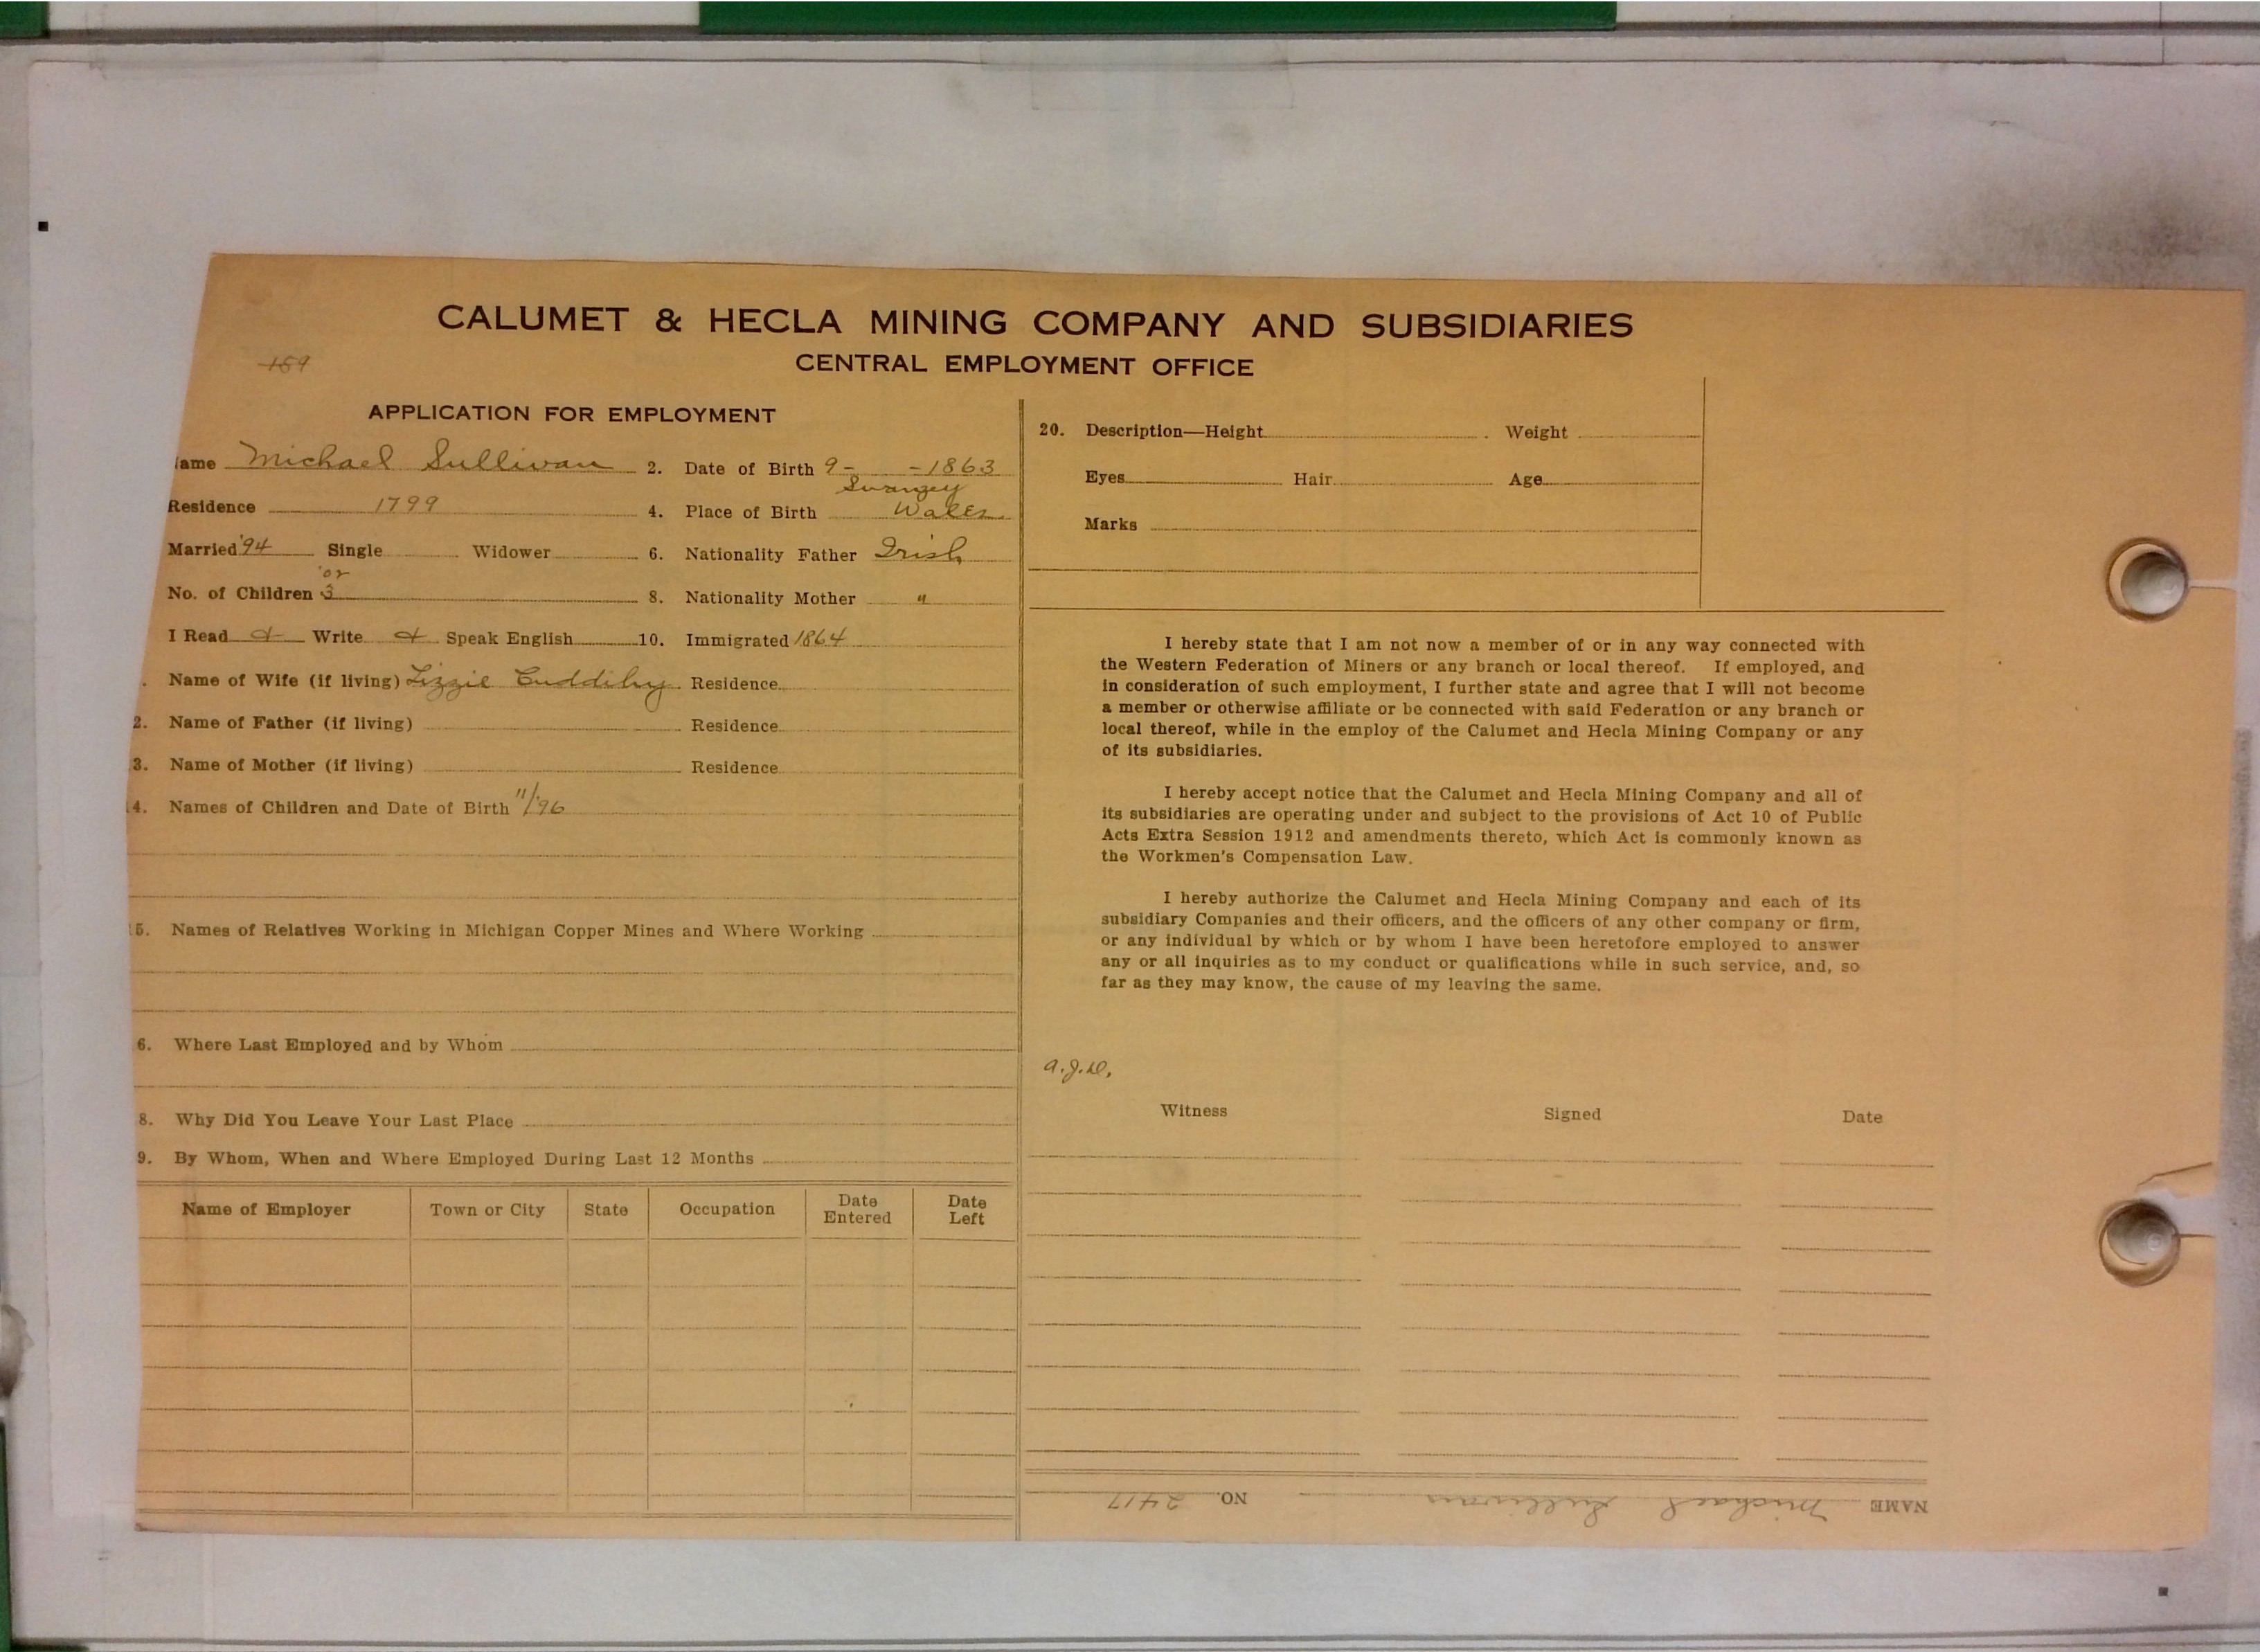 CALUMET & HECLA MINING COMPANY AND SUBSIDIARIES
CENTRAL EMPLOYMENT OFFICE
159
APPLICATION FOR EMPLOYMENT
ame Michael Sullivan 2. Date of Birth 9- -1863
Swanzey
Residence 1799 4. Place of Birth Wales
Married '94 Single Widower 6. Nationality Father Irish
'02
No. of Children 3 8. Nationality Mother "
I Read & Write & Speak English 10. Immigrated 1864
. Name of Wife (if living) Lizzie Cuddihy Residence
2. Name of Father (if living) Residence
3. Name of Mother (if living) Residence
14. Names of Children and Date of Birth 11/'96
15. Names of Relatives Working in Michigan Copper Mines and Where Working
6. Where Last Employed and by Whom
8. Why Did You Leave Your Last Place
9. By Whom, When and Where Employed During Last 12 Months
Name of Employer Town or City State Occupation Date Entered Date Left
20. Description—Height Weight
Eyes Hair Age
Marks
I hereby state that I am not now a member of or in any way connected with
the Western Federation of Miners or any branch or local thereof. If employed, and
in consideration of such employment, I further state and agree that I will not become
a member or otherwise affiliate or be connected with said Federation or any branch or
local thereof, while in the employ of the Calumet and Hecla Mining Company or any
of its subsidiaries.
I hereby accept notice that the Calumet and Hecla Mining Company and all of
its subsidiaries are operating under and subject to the provisions of Act 10 of Public
Acts Extra Session 1912 and amendments thereto, which Act is commonly known as
the Workmen's Compensation Law.
I hereby authorize the Calumet and Hecla Mining Company and each of its
subsidiary Companies and their officers, and the officers of any other company or firm,
or any individual by which or by whom I have been heretofore employed to answer
any or all inquiries as to my conduct or qualifications while in such service, and, so
far as they may know, the cause of my leaving the same.
a.J.D.
Witness Signed Date
NAME Michael Sullivan NO. 2417